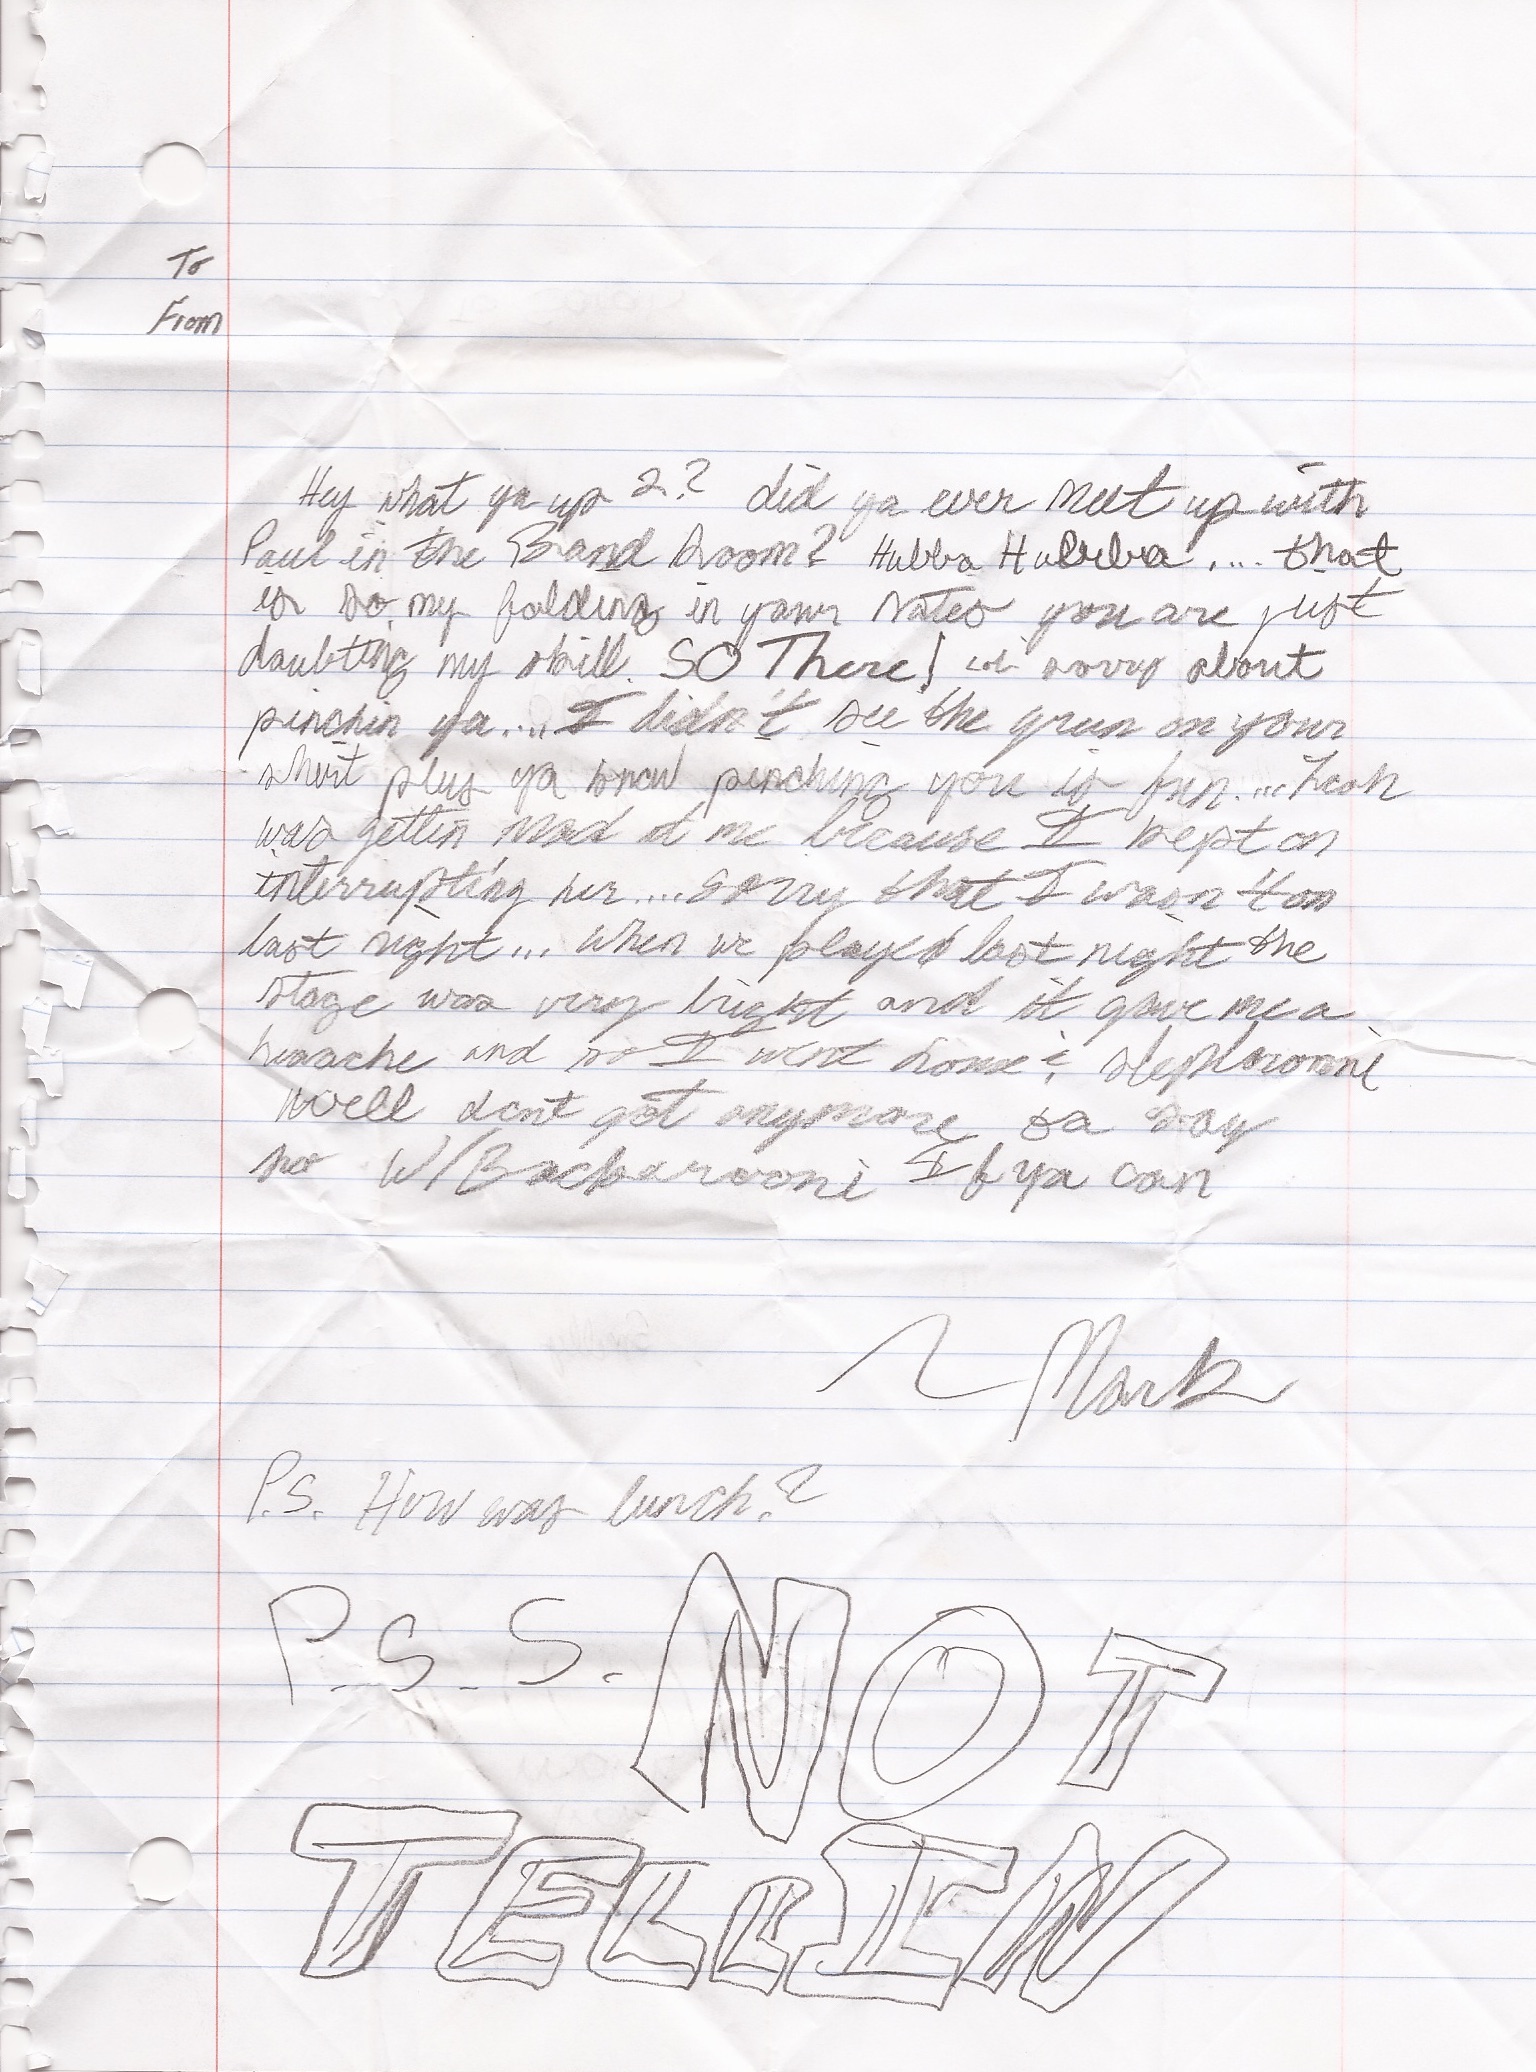 To
From
Hey what ya up 2? did ya ever meet up with
Paul in the Band Room? Hubba Hubba.... that
is so. my folding in your notes you are just
doubting my skill. SO There! sorry about
pinchin ya.... I didn't see the green on your
shirt plus ya know pinching you is fun.... Leah
was gettin mad at me because I kept on
interrupting her.... sorry that I wasn't on
last night... when we played last night the
stage was very bright and it gave me a
and so I went home &
Well dont got anymore ta say
so W/Backarooni If ya can
~ Mark
P.S. How was lunch?
P.S.S. NOT
TELLIN